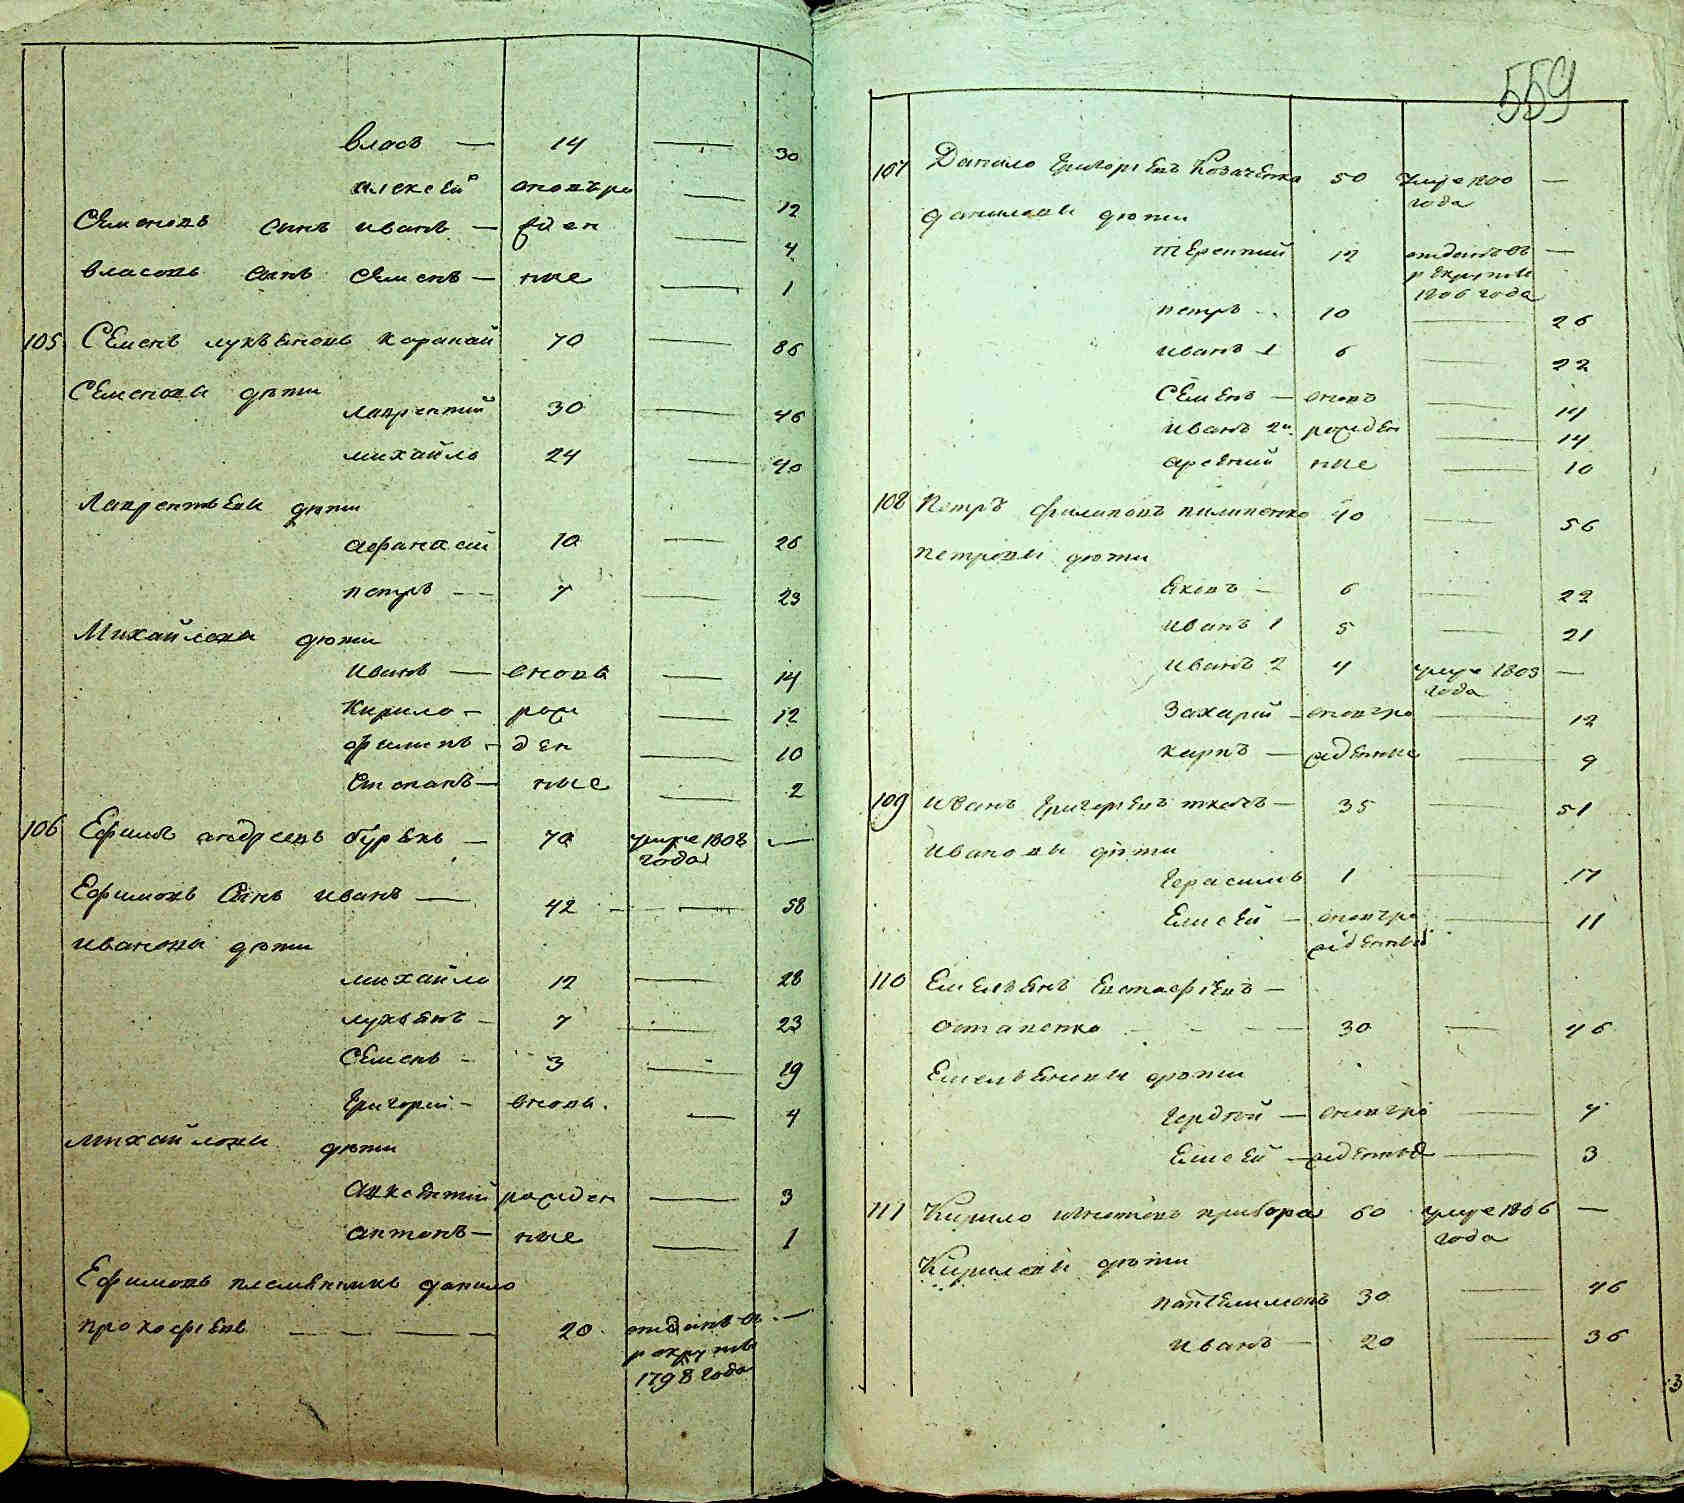 власъ — 14 — 30
алексей вновьро — 12
Семеновъ сынъ иванъ — жден — 4
власовъ сынъ семенъ — ные — 1
105 Семенъ лукьяновъ каранай 70 — 86
Семеновы дѣти
лаврентий 30 — 46
михайло 24 — 40
Лаврентьевы дѣти
афанасий 10 — 26
петръ — 7 — 23
Михайловы дѣти
иванъ — вновь — 14
Кирило — рож — 12
филипъ — ден — 10
Степанъ — ные — 2
106 Ефимъ андреевъ бурякъ — 70 умре 1808 года —
Ефимовъ сынъ иванъ — 42 — 58
ивановы дѣти
михайло 12 — 28
лукьянъ — 7 — 23
Семенъ — 3 — 19
Григорий — вновь — 4
михайловы дѣти
авксентий рожден — 3
антонъ — ные — 1
Ефимовъ племянникъ данило
прокофьевъ — 20 отданъ въ рекруты 1798 года —
559
107 Данило Григорьевъ Козаченко 50 умре 1800 года —
даниловы дѣти
терентий 12 отданъ въ рекруты 1806 года —
петръ 10 — 26
иванъ 1 6 — 22
Семенъ — вновь — 14
иванъ 2й рожден — 14
арсений ные — 10
108 Петръ филиповъ пилипенко 40 — 56
петровы дѣти
яковъ — 6 — 22
иванъ 1 5 — 21
иванъ 2 4 умре 1803 года —
Захарий — вновьро — 12
карпъ — жденные — 9
109 иванъ Григорьевъ ткачъ — 35 — 51
ивановы дѣти
Герасимъ 1 — 17
Елисей — вновьро жденный — 11
110 Емельянъ Евстафьевъ —
остапенко — 30 — 46
Емельяновы дѣти
Гордей — вновьро — 4
Елисей — жденные — 3
111 Кирило игнатовъ 60 умре 1806 года —
Кириловы дѣти
пантелимонъ 30 — 46
иванъ — 20 — 36